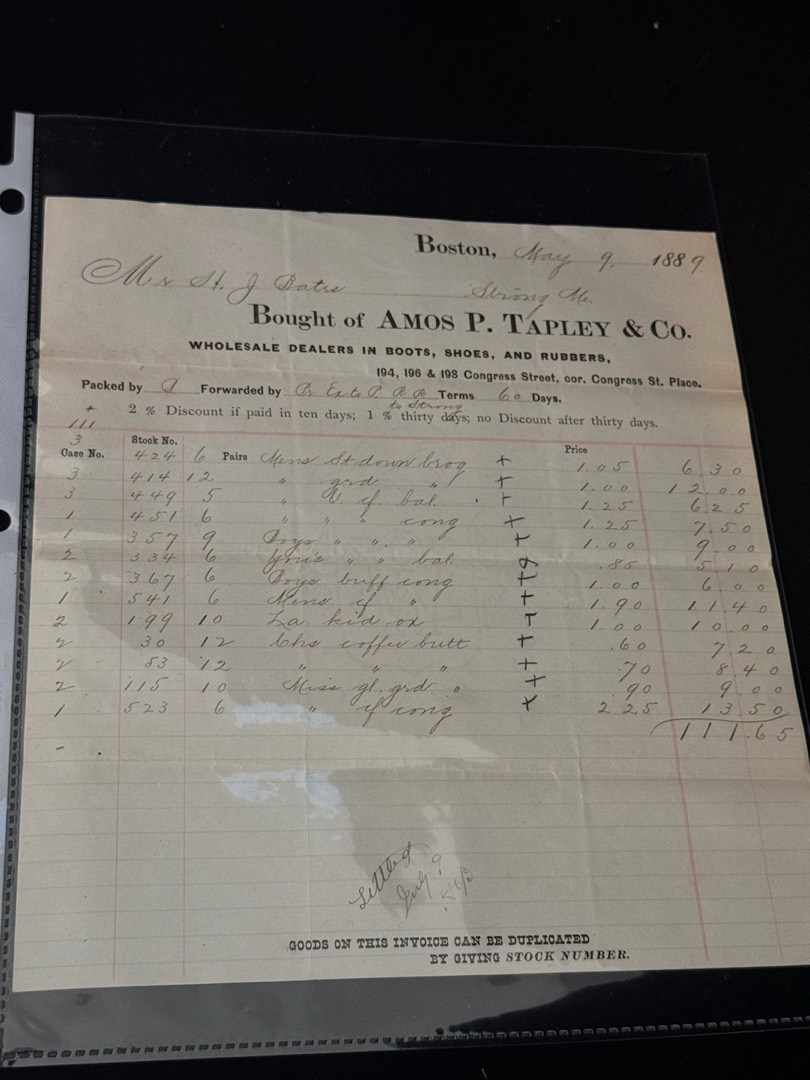 Boston, May 9, 1889
Mr H. J. Bates Strong Me.
Bought of AMOS P. TAPLEY & CO.
WHOLESALE DEALERS IN BOOTS, SHOES, AND RUBBERS,
194, 196 & 198 Congress Street, cor. Congress St. Place.
Packed by Forwarded by P. R R Terms 60 Days.
to Strong
+ 2 % Discount if paid in ten days; 1 % thirty days; no Discount after thirty days.
111
Case No. Stock No. Pairs Price
3 424 6 Mens St down brog + 1.05 6 30
3 414 12 " grd " + 1.00 12.00
3 449 5 " bal. + 1.25 6 25
1 451 6 " " " cong + 1.25 7.50
1 357 9 Boys " " " + 1.00 9.00
2 334 6 " " bal .85 5 10
2 367 6 Boys buff cong + 1.00 6.00
1 541 6 Mens cf " + 1.90 11 40
2 199 10 La. kid ox + 1.00 10.00
2 30 12 Chs coffee butt + .60 7 20
2 53 12 " " " + .70 8 40
2 115 10 Miss gl. grd " + .90 9.00
1 523 6 " cf cong + 2.25 13 50
111.65
Settled
July 9
GOODS ON THIS INVOICE CAN BE DUPLICATED
BY GIVING STOCK NUMBER.